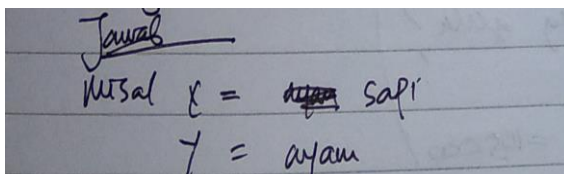 Jawab
Misal x = sapi
y = ayam